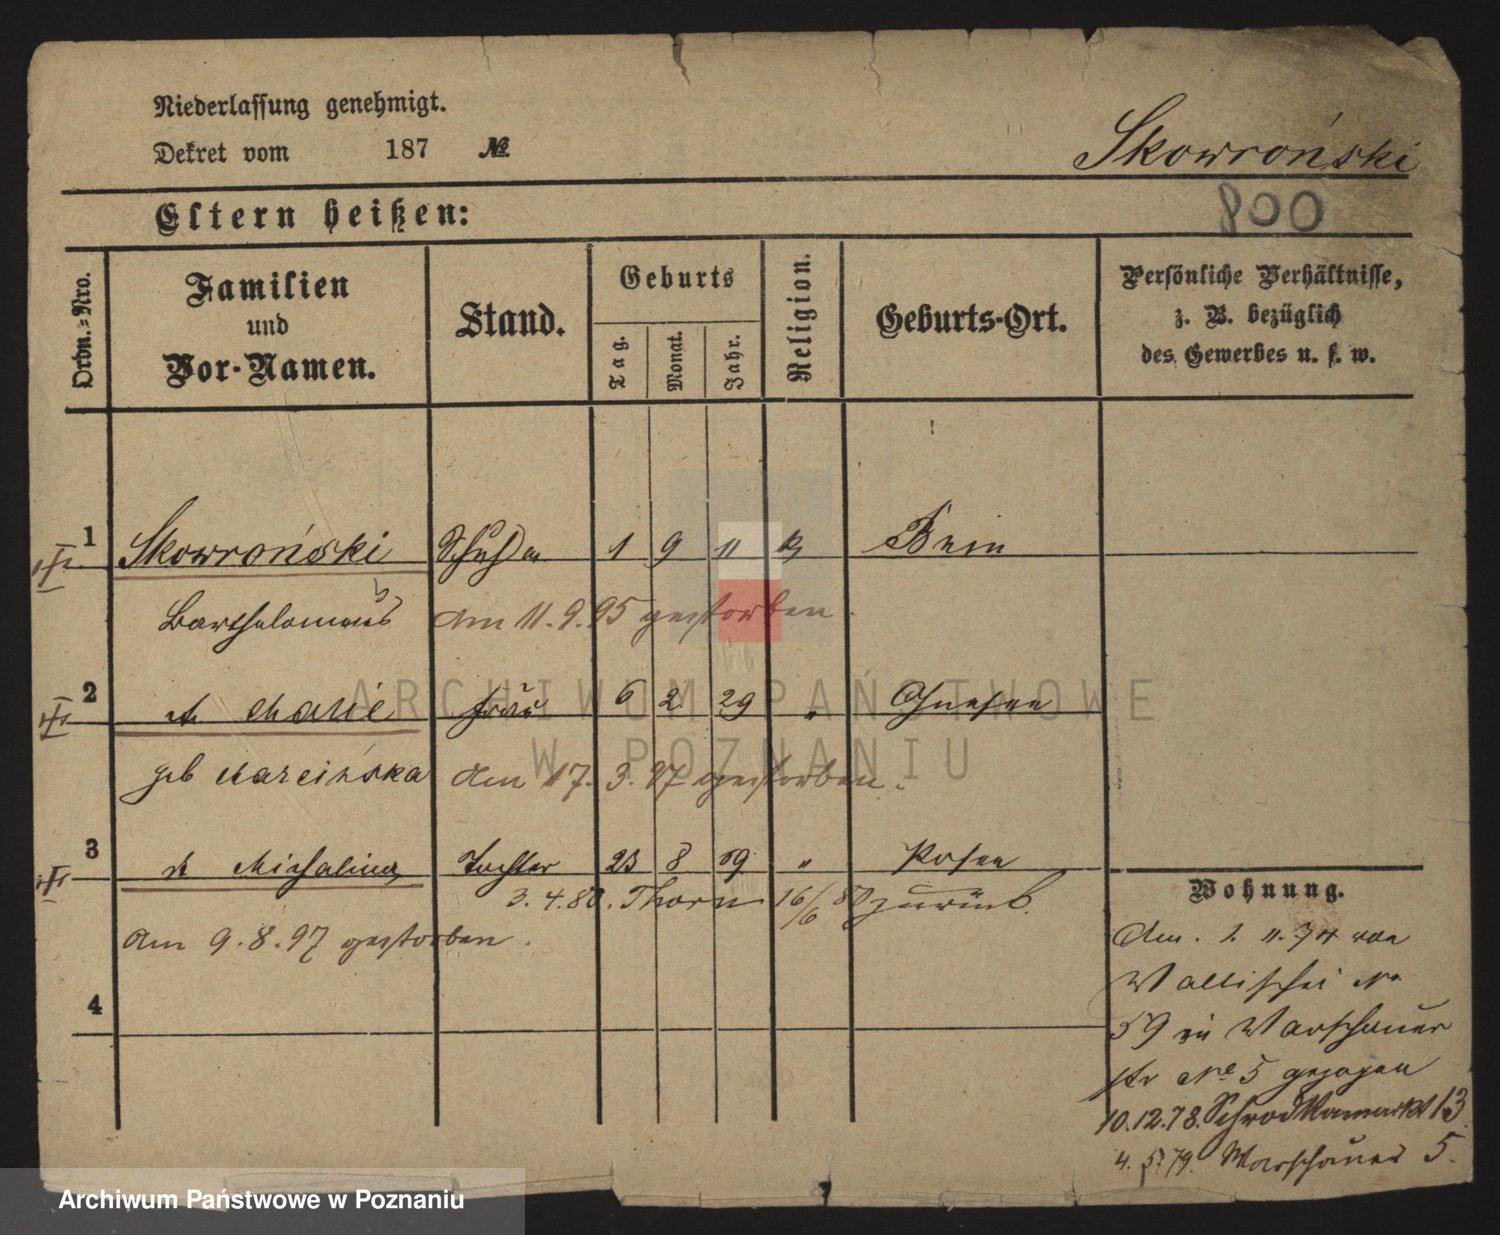 Niederlassung genehmigt.
Dekret vom 187 №
Skowroński
800
Eltern heißen:
Ordn.=Nro.
Familien
und
Vor-Namen.
Stand.
Geburts
Tag.
Monat.
Jahr.
Religion.
Geburts-Ort.
Persönliche Verhältnisse,
z. B. bezüglich
des Gewerbes u. s. w.
1 Skowroński 1 9 11 k Bnin
Bartholomeus am 11.9.95 gestorben.
2 Marie Frau 6 2 29 " Gnesen
geb Marcińska am 17.3.97 gestorben.
3 Michalina Tochter 23 8 59 " Posen
3.4.80. Thorn 16/6 80 zurück.
am 9.8.97 gestorben.
4
Wohnung.
Am 1. 11. 74 von
Wallischei No
59 in Warschauer
str No 5 gezogen
10.12.78. Schrodkamarkt 13
4. 5 79. Warschauer 5.
ARCHIWUM PAŃSTWOWE
W POZNANIU
Archiwum Państwowe w Poznaniu